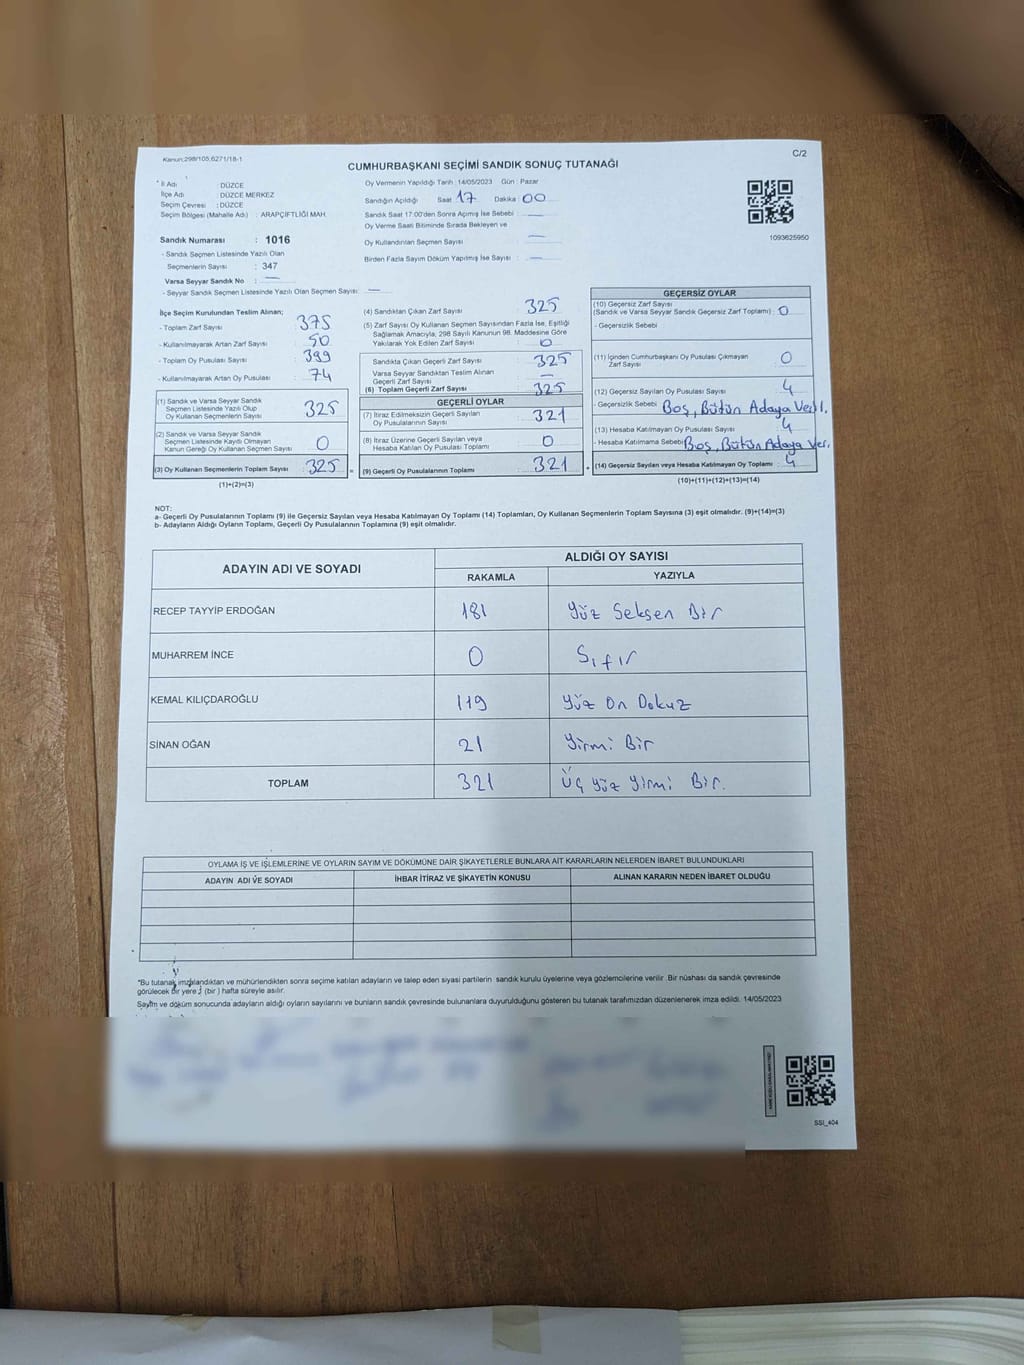 Kanun:298/105,6271/18-1
C/2
CUMHURBAŞKANI SEÇİMİ SANDIK SONUÇ TUTANAĞI
İl Adı : DÜZCE
İlçe Adı : DÜZCE MERKEZ
Seçim Çevresi : DÜZCE
Seçim Bölgesi (Mahalle Adı) : ARAPÇİFTLİĞİ MAH.
Sandık Numarası : 1016
- Sandık Seçmen Listesinde Yazılı Olan
Seçmenlerin Sayısı : 347
Varsa Seyyar Sandık No : —
- Seyyar Sandık Seçmen Listesinde Yazılı Olan Seçmen Sayısı: —
Oy Vermenin Yapıldığı Tarih :14/05/2023 Gün : Pazar
Sandığın Açıldığı Saat 17 Dakika : 00
Sandık Saat 17:00'den Sonra Açımış İse Sebebi : —
Oy Verme Saati Bitiminde Sırada Bekleyen ve
Oy Kullandırılan Seçmen Sayısı : —
Birden Fazla Sayım Döküm Yapılmış İse Sayısı : —
1093625950
İlçe Seçim Kurulundan Teslim Alınan;
- Toplam Zarf Sayısı : 375
- Kullanılmayarak Artan Zarf Sayısı : 50
- Toplam Oy Pusulası Sayısı : 399
- Kullanılmayarak Artan Oy Pusulası : 74
(1) Sandık ve Varsa Seyyar Sandık
Seçmen Listesinde Yazılı Olup
Oy Kullanan Seçmenlerin Sayısı : 325
(2) Sandık ve Varsa Seyyar Sandık
Seçmen Listesinde Kaydı Olmayan
Kanun Gereği Oy Kullanan Seçmen Sayısı : 0
(3) Oy Kullanan Seçmenlerin Toplam Sayısı : 325 =
(1)+(2)=(3)
(4) Sandıktan Çıkan Zarf Sayısı : 325
(5) Zarf Sayısı Oy Kullanan Seçmen Sayısından Fazla İse, Eşitliği
Sağlamak Amacıyla, 298 Sayılı Kanunun 98. Maddesine Göre
Yakılarak Yok Edilen Zarf Sayısı : 0
Sandıkta Çıkan Geçerli Zarf Sayısı : 325
Varsa Seyyar Sandıktan Teslim Alınan
Geçerli Zarf Sayısı : —
(6) Toplam Geçerli Zarf Sayısı : 325
GEÇERLİ OYLAR
(7) İtiraz Edilmeksizin Geçerli Sayılan
Oy Pusulalarının Sayısı : 321
(8) İtiraz Üzerine Geçerli Sayılan veya
Hesaba Katılan Oy Pusulası Toplamı : 0
(9) Geçerli Oy Pusulalarının Toplamı : 321 +
GEÇERSİZ OYLAR
(10) Geçersiz Zarf Sayısı
(Sandık ve Varsa Seyyar Sandık Geçersiz Zarf Toplamı) : 0
- Geçersizlik Sebebi :
(11) İçinden Cumhurbaşkanı Oy Pusulası Çıkmayan
Zarf Sayısı : 0
(12) Geçersiz Sayılan Oy Pusulası Sayısı : 4
- Geçersizlik Sebebi : Boş, Bütün Adaya Veril.
(13) Hesaba Katılmayan Oy Pusulası Sayısı : 4
- Hesaba Katılmama Sebebi : Boş, Bütün Adaya Ver.
(14) Geçersiz Sayılan veya Hesaba Katılmayan Oy Toplamı : 4
(10)+(11)+(12)+(13)=(14)
NOT:
a- Geçerli Oy Pusulalarının Toplamı (9) ile Geçersiz Sayılan veya Hesaba Katılmayan Oy Toplamı (14) Toplamları, Oy Kullanan Seçmenlerin Toplam Sayısına (3) eşit olmalıdır. (9)+(14)=(3)
b- Adayların Aldığı Oyların Toplamı, Geçerli Oy Pusulalarının Toplamına (9) eşit olmalıdır.
ADAYIN ADI VE SOYADI
ALDIĞI OY SAYISI
RAKAMLA YAZIYLA
RECEP TAYYİP ERDOĞAN 181 Yüz Seksen Bir
MUHARREM İNCE 0 Sıfır
KEMAL KILIÇDAROĞLU 119 Yüz On Dokuz
SİNAN OĞAN 21 Yirmi Bir
TOPLAM 321 Üç Yüz Yirmi Bir.
OYLAMA İŞ VE İŞLEMLERİNE VE OYLARIN SAYIM VE DÖKÜMÜNE DAİR ŞİKAYETLERLE BUNLARA AİT KARARLARIN NELERDEN İBARET BULUNDUKLARI
ADAYIN ADI VE SOYADI İHBAR İTİRAZ VE ŞİKAYETİN KONUSU ALINAN KARARIN NEDEN İBARET OLDUĞU
*Bu tutanak imzalandıktan ve mühürlendikten sonra seçime katılan adayların ve talep eden siyasi partilerin sandık kurulu üyelerine veya gözlemcilerine verilir. Bir nüshası da sandık çevresinde
görülecek bir yere 1 (bir ) hafta süreyle asılır.
Sayım ve döküm sonucunda adayların aldığı oyların sayılarını ve bunların sandık çevresinde bulunanlara duyurulduğunu gösteren bu tutanak tarafımızdan düzenlenerek imza edildi. 14/05/2023
SSI_404